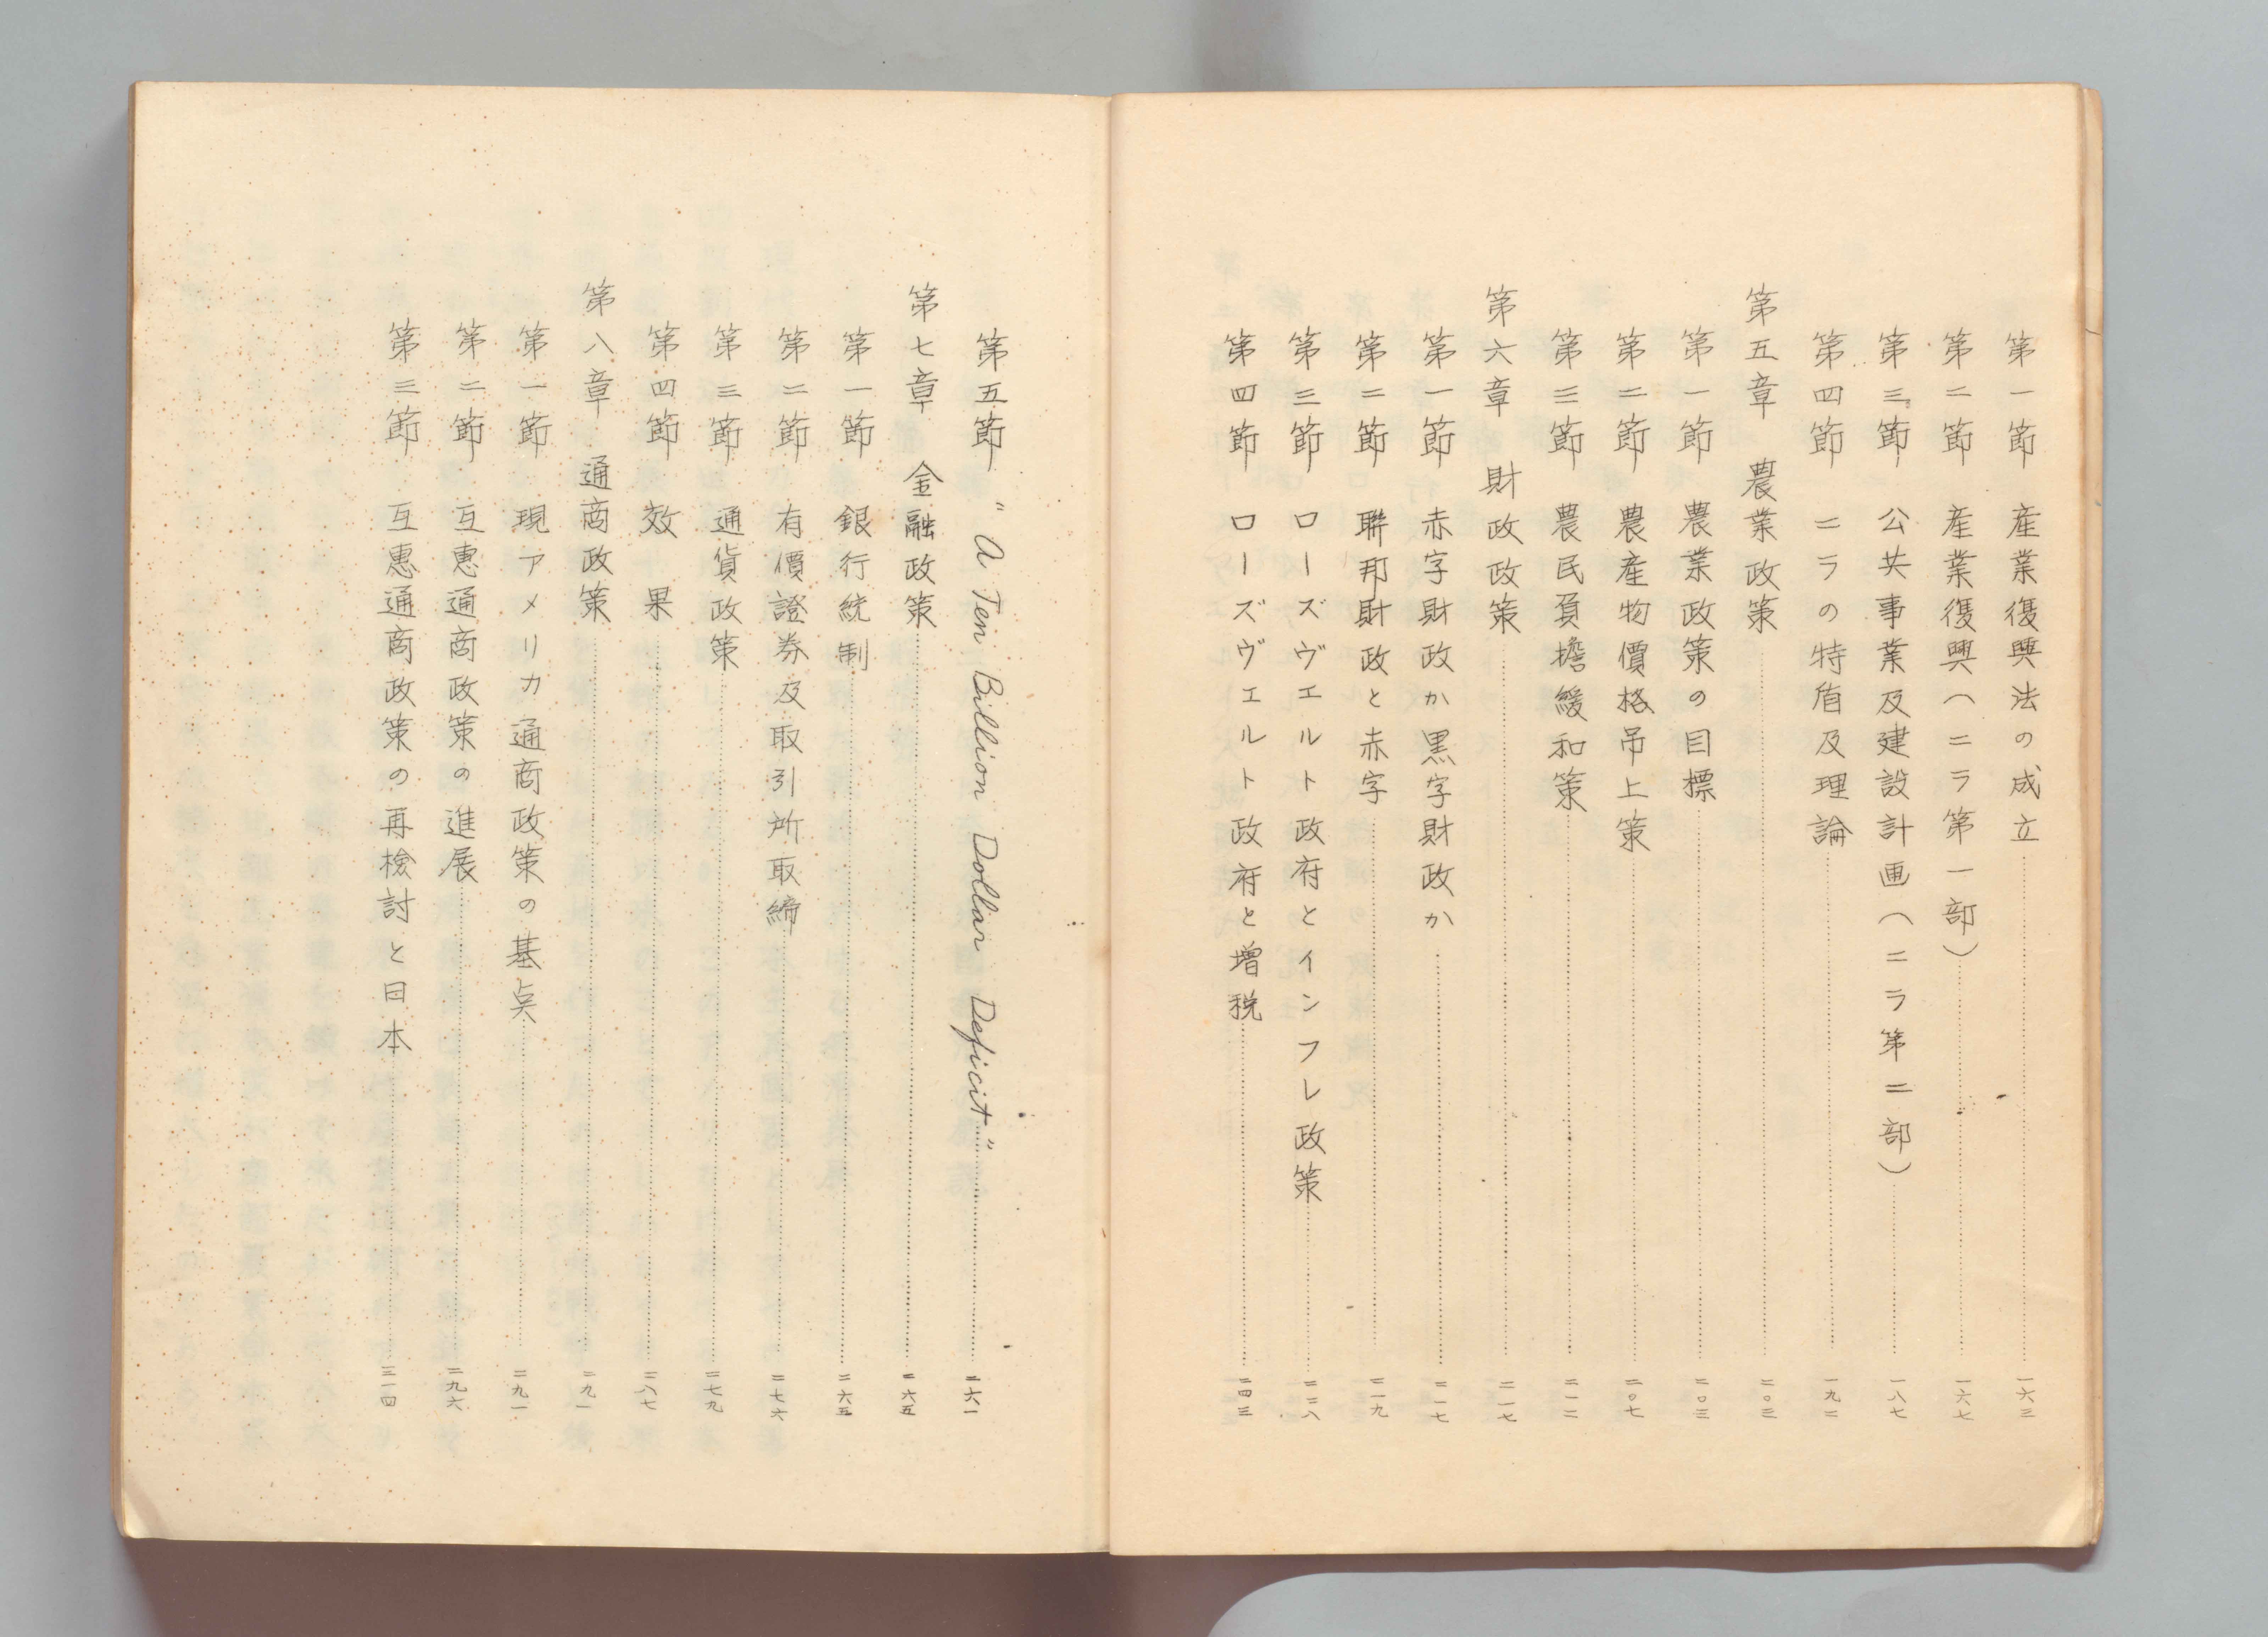 第一節　産業復興法の成立………一六三
第二節　産業復興（ニラ第一部）………一六七
第三節　公共事業及建設計画（ニラ第二部）………一八七
第四節　ニラの特盾及理論………一九二
第五章　農業政策………二〇三
第一節　農業政策の目標………二〇三
第二節　農産物價格吊上策………二〇七
第三節　農民負擔緩和策………二一二
第六章　財政政策………二一七
第一節　赤字財政か黒字財政か………二一七
第二節　聯邦財政と赤字………二一九
第三節　ローズヴェルト政府とインフレ政策………二二八
第四節　ローズヴェルト政府と増税………二四三
第五節　"A Ten Billion Dollar Deficit"………二六一
第七章　金融政策………二六五
第一節　銀行統制………二六五
第二節　有價證券及取引所取締………二七六
第三節　通貨政策………二七九
第四節　效果………二八七
第八章　通商政策………二九一
第一節　現アメリカ通商政策の基点………二九一
第二節　互惠通商政策の進展………二九六
第三節　互惠通商政策の再檢討と日本………三一四